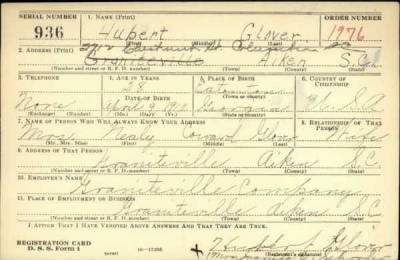 SERIAL NUMBER
1. NAME (Print)
ORDER NUMBER
936
Hubert Glover
1976
2. ADDRESS (Print)
Columbia SC
Graniteville Aiken S.C.
(Number and street or R. F. D. number) (Town) (County) (State)
3. TELEPHONE
4. AGE IN YEARS
5. PLACE OF BIRTH
6. COUNTRY OF CITIZENSHIP
28
None
DATE OF BIRTH
Georgia
7. NAME OF PERSON WHO WILL ALWAYS KNOW YOUR ADDRESS
8. RELATIONSHIP OF THAT PERSON
Mrs. Nealy Coward Glover Wife
(Mr., Mrs., Miss) (First) (Middle) (Last)
9. ADDRESS OF THAT PERSON
Graniteville Aiken S.C.
(Number and street or R. F. D. number) (Town) (County) (State)
10. EMPLOYER'S NAME
Graniteville Company
11. PLACE OF EMPLOYMENT OR BUSINESS
Graniteville Aiken S.C.
(Number and street or R. F. D. number) (Town) (County) (State)
I AFFIRM THAT I HAVE VERIFIED ABOVE ANSWERS AND THAT THEY ARE TRUE.
REGISTRATION CARD
D. S. S. Form 1
Hubert Glover
(Registrant's signature)